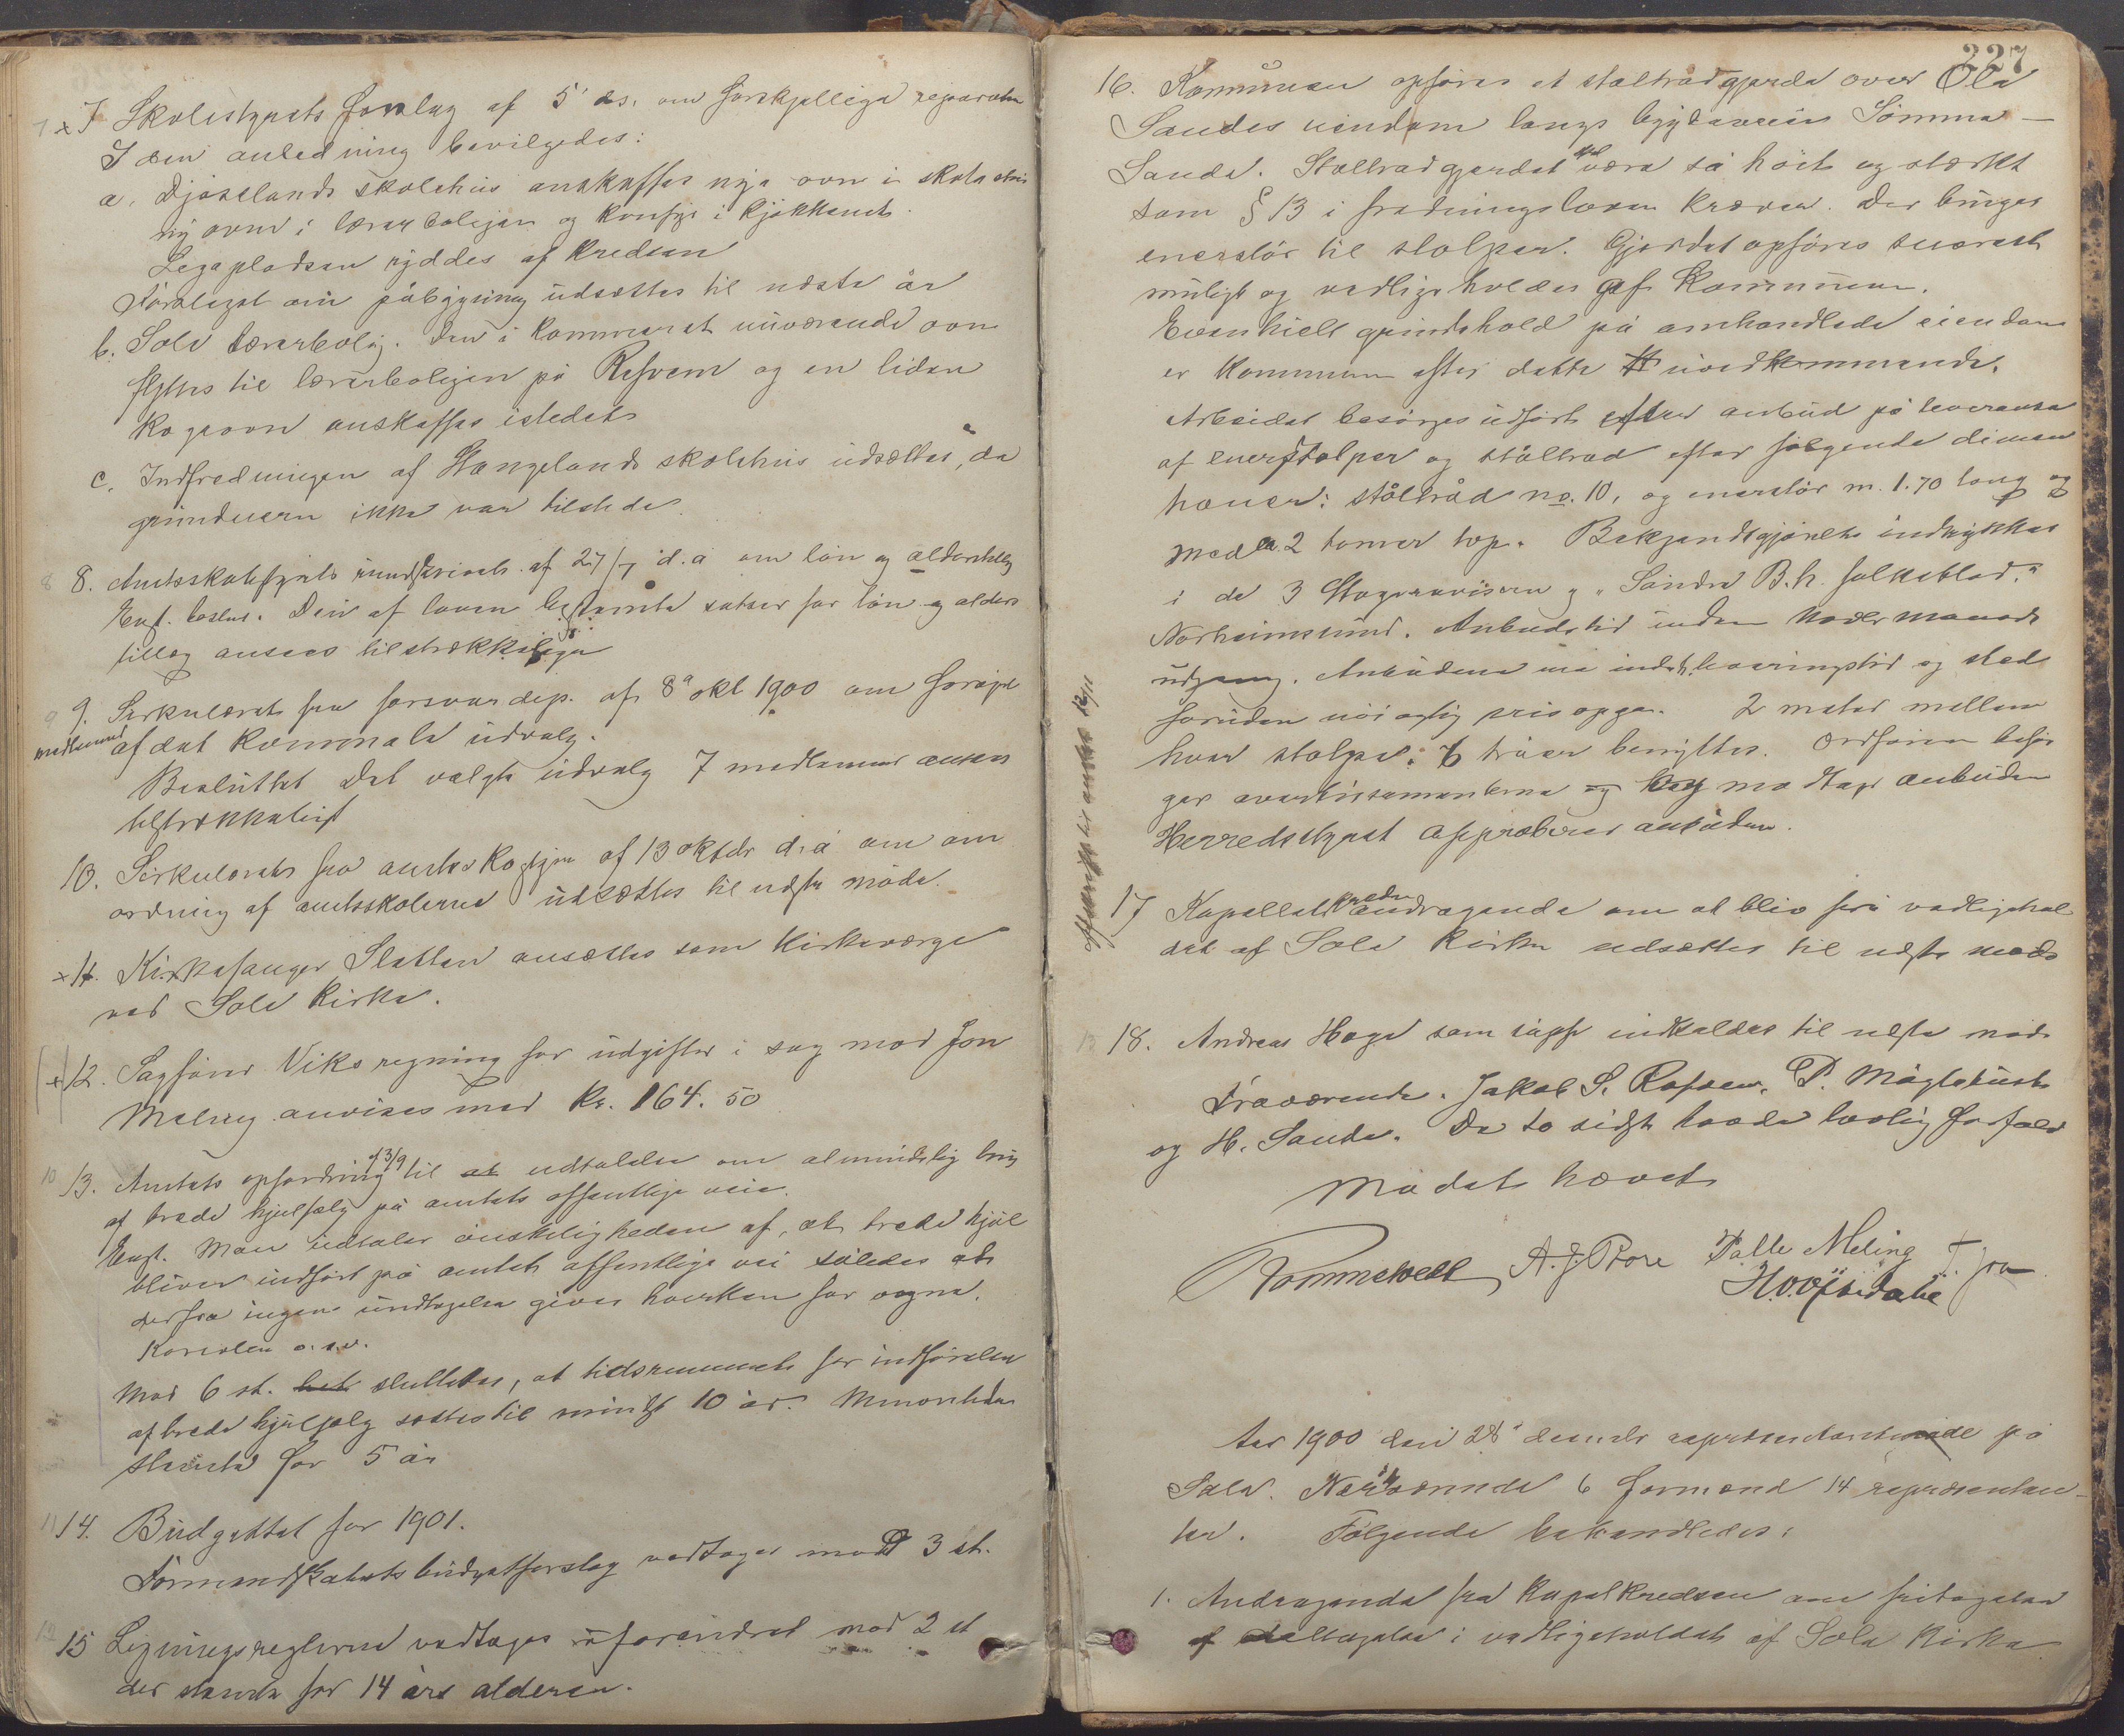 7 x 7 Skolestyrets forslag af 5' ds. om forskjellige reparation
I den anledning bevilgedes:
a, Djøselands skolehus anskaffes nye ovn i skolestue
ny ovn i lærerboligen og komfyr i kjøkkenet.
Legepladsen ryddes af kredsen
Forslaget om påbygning udsættes til næste år
b. Sole lærerbolig. Den i kammeret nuværende ovn
flyttes til lærerboligen på Ræfsem og en liden
kogeovn anskaffes istedet
c. Indfredningen af Haugelands skolehus udsættes, da
grundeieren ikke var tilstede.
8 8. Amtsskolestyrets rundskrivelse af 27/7 d.å om løn og alderstillæg
Enst. beslut. Den af loven bestemte satser for løn og alders
tillæg ansees tilstrækkelige
9 9. Sirkulæret fra forsvarsdep. af 8' okt 1900 om forøgel
medlemmer af det kommunale udvalg.
Besluttet Det valgte udvalg 7 medlemmer ansees
tilstrækkeligt
10. Sirkulæret fra amtsskolestyre af 13 oktbr d.å om om
ordning af amtsskolerne udsættes til næste møde.
x 11. Kirkesanger Sletten ansættes som kirkeværge
ved Sole kirke.
x 12. Sagfører Viks regning for udgifter i sag mod Jon
Meling anvises med kr. 164.50
10 13. Amtets opfordring af 3/9 til at udtalelse om almindelig brug
af brede hjulfælg på amtets offentlige veie.
Enst. Man udtaler ønskeligheden af, at brede hjul
bliver indført på amtets offentlige vei således at
derfra ingen undtagelse gives hverken for vogne,
karioler o.s.v.
Mod 6 st. besluttedes, at tidsrummet for indførelse
af brede hjulfælg sættes til mindst 10 år. Minoriteten
stemte for 5 år
11 14. Budgettet for 1901.
Formandskabets budgetforslag vedtages mod 3 st.
12 15 Ligningsreglerne vedtages uforandret mod 2 st
der stemte for 14 års alderen.
327
16. Kommunen opfører et ståltrådgjerde over Ola
Sandes eiendom langs bygdeveien Sømme -
Sande. Ståltrådgjerdet skal være så høit og stærkt
som § 13 i fredningsloven kræver. Der bruges
enerstør til stolper. Gjerdet opføres snarest
muligt og vedligeholdes af kommunen.
Eventuelt grindehold på omhandlede eiendom
er kommunen efter dette uvedkommende.
Arbeidet besørges udført efter anbud på leveranse
af enerstolper og ståltråd efter følgende dimen
honer: ståltråd no. 10, og enerstør m. 1.70 lang og
med 2 tommer top. Bekjendtgjørelse indrykkes
i de 3 Stavangeraviser og "Søndre B.h. folkeblad"
Norheimsund. Anbudstid inden novbr maaneds
udgang. Anbudene må indeh. leveringstid og sted
foruden nøiagtig prisopgave. 2 meter mellem
hver stolpe. 6 tråer benyttes. Ordføren besør
ger avertissementerne og modtager anbuden
Herredsstyret approberer anbuden.
17 Kapellets kredsandragende om at blive fri vedligehol
det af Sole kirke udsættes til næste møde
18. Andreas Hoge som supl indkaldes til næste møde
Fraværende. Jakob S. Ræfsem, P. Møgletust
og H. Sande. De to sidste havde lovlig forfald
Mødet hævet
Rommetvedt A. J. Rore Palle Meling T. Jra
H. Vestedahl
Aar 1900 den 28' decmbr representantmøde på
Sole. Nærværende 6 formænd 14 repræsentan-
ter. Følgende behandledes:
1. Andragende fra kapelkredsen om fritagelse
af deltagelse i vedligeholdet af Sola kirke